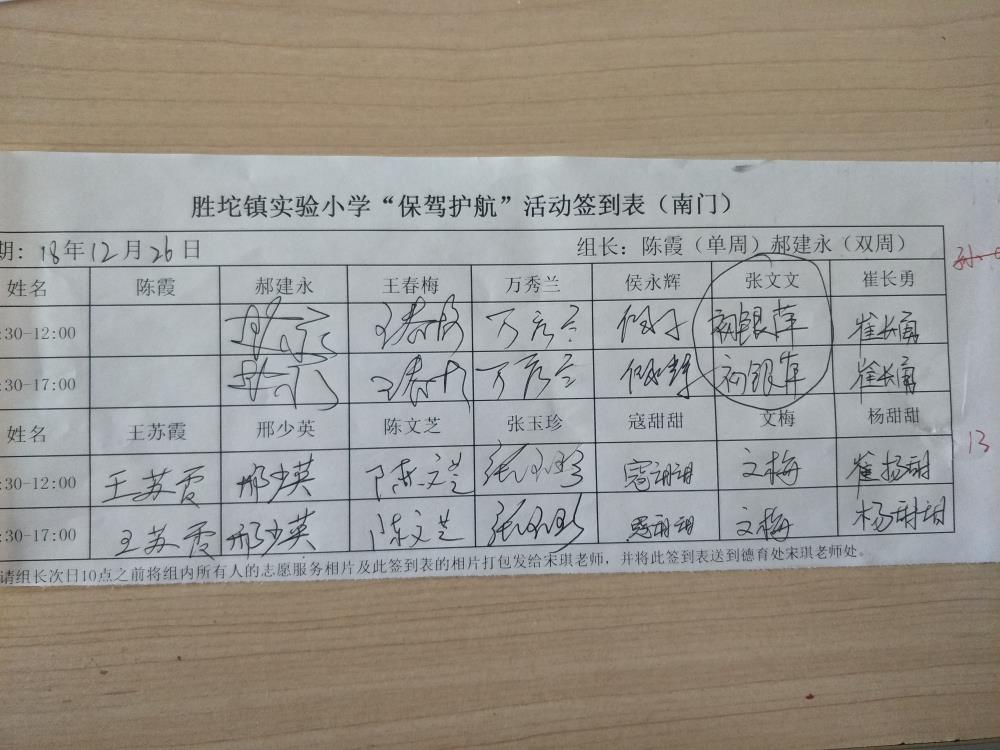 胜坨镇实验小学“保驾护航”活动签到表（南门）
期: 18年12月26日 组长: 陈霞（单周）郝建永（双周）
姓名 陈霞 郝建永 王春梅 万秀兰 侯永辉 张文文 崔长勇
:30-12:00 王春梅 万秀兰 初银萍 崔长勇
:30-17:00 王春梅 万秀兰 侯永辉 初银萍 崔长勇
姓名 王苏霞 邢少英 陈文芝 张玉珍 寇甜甜 文梅 杨甜甜
:30-12:00 王苏霞 邢少英 陈文芝 张玉珍 寇甜甜 文梅 杨甜
13
:30-17:00 王苏霞 邢少英 陈文芝 张玉珍 寇甜甜 文梅 杨甜甜
请组长次日10点之前将组内所有人的志愿服务相片及此签到表的相片打包发给宋琪老师，并将此签到表送到德育处宋琪老师处。